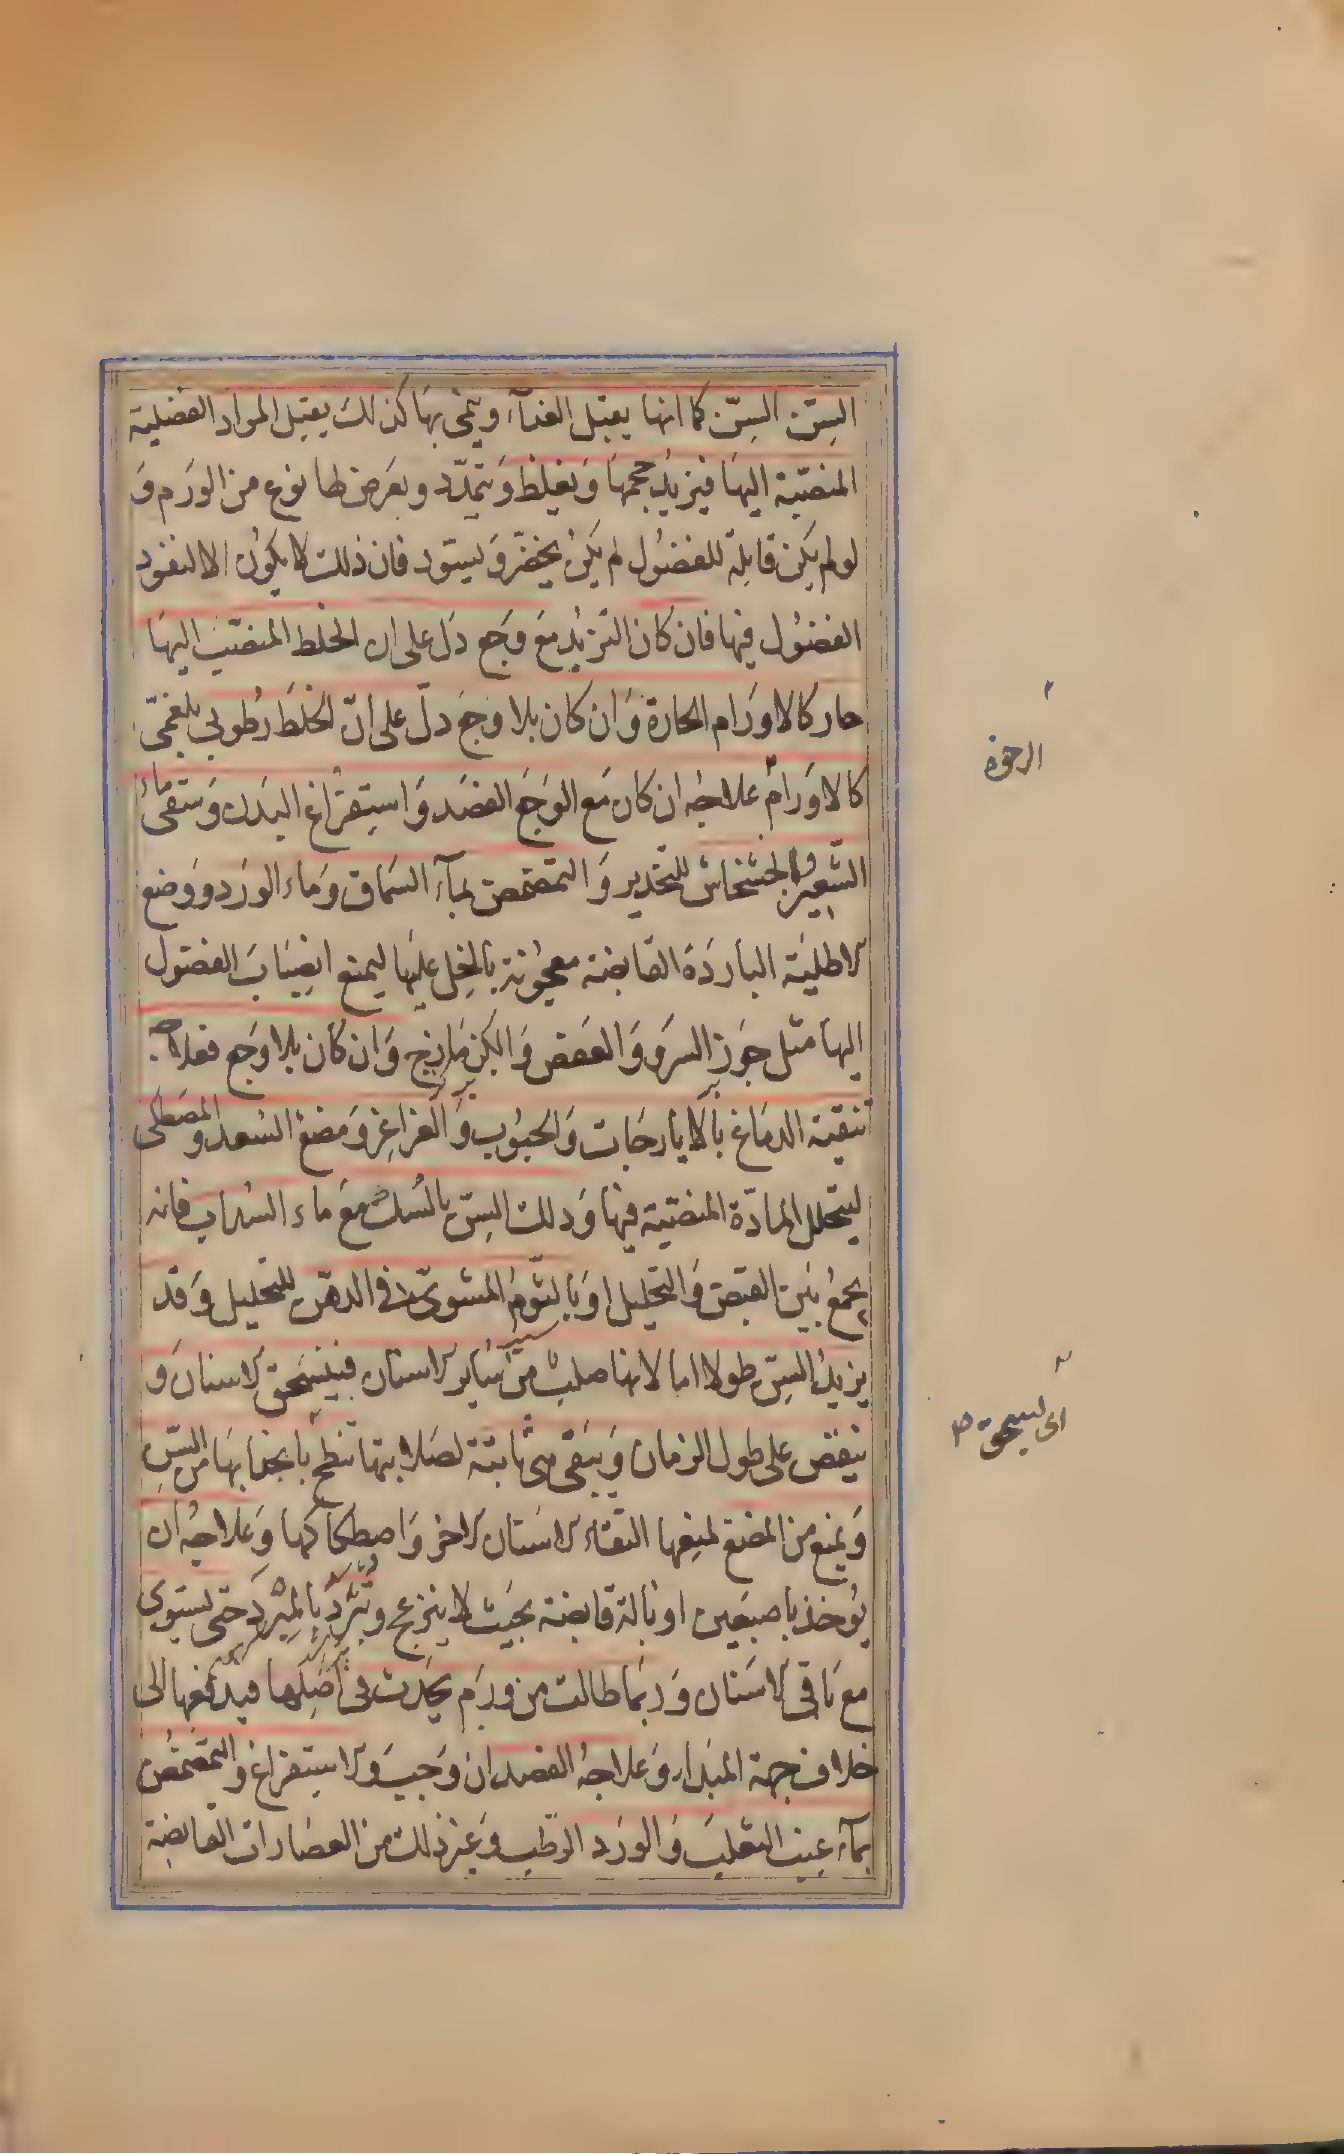 السِنّ السِنّ كما انها يقبل الغذآء وينمى بها كذلك يقبل المواد الفضلية
المنصَبّة اليها فيزيد حجمها وَيغلظ وَيتمدّد ويعرَض لها نوع من الورَم وَ
لو لم يكن قابلة للفضُول لم يكن يخضرّ وَيسوّد فان ذلك لا يكون الا لنفود
الفضُول فيها فان كان التزيّد مَع وَجع دَل على ان الخلط المنصَبّ اليها
حار كالاورَام الحارة وَان كان بلا وَجع دلّ على انّ الخلط رطوبي بلغميّ
كالاوَرام علاجه ان كان مَع الوَجع الفصَد وَاستفراغ البدن وَسَقى ماء
الشَّعير والخشخاش للتخدير وَالتمضمض بمآء السماق وَماء الورَد ووَضع
الاطلية البارَدة القابضة معجونة بالخل عليها ليمنع انصِبَابَ الفضول
اليها مثل جَوز السرو وَالعفص وَالكزمازج وَان كان بلا وَجع فعلاجه
تنقية الدماغ بالايارجات وَالحبُوب وَالغراغر وَمضغ السُعد والمصطكى
ليتحلل المادّة المنصَبّة فيها وَدلك السِنّ بالسُك مع ماء السُداب فانه
يجمعُ بين القبض وَالتحليل اوَ بالثوم المشوىّ فى الدهن للتحليل وَقد
يزيدُ السِنّ طولا اما لانها صلبت من سَاير الاسنان فينسَحق الاسنان وَ
ينقص على طول الزمان وَيبَقى هى ثابتة لصَلابتها تنطح بانجذابها من السِنّ
وَيمنع من المضغ لمنعِها التقاء الاسنان الاخر وَاصطكاكها وَعلاجهُ ان
يُوخذ باصبَعين او بالة قابضة بحيث لا ينزعج وتُبرَد بالمِبْرد حتى يستوى
مع باقى الاسَنان وَربما طالت من ورَم يحدث فى اصلها فيدفعها الى
خلاف جهة المبداء وَعلاجهُ الفصد ان وَجبَ وَالاستفراغ والتمضمض
بمآء عنب الثعلب وَالورَد الرطب وَغير ذلك من العصَارات القابضة
الرخوة
اى ليسحق